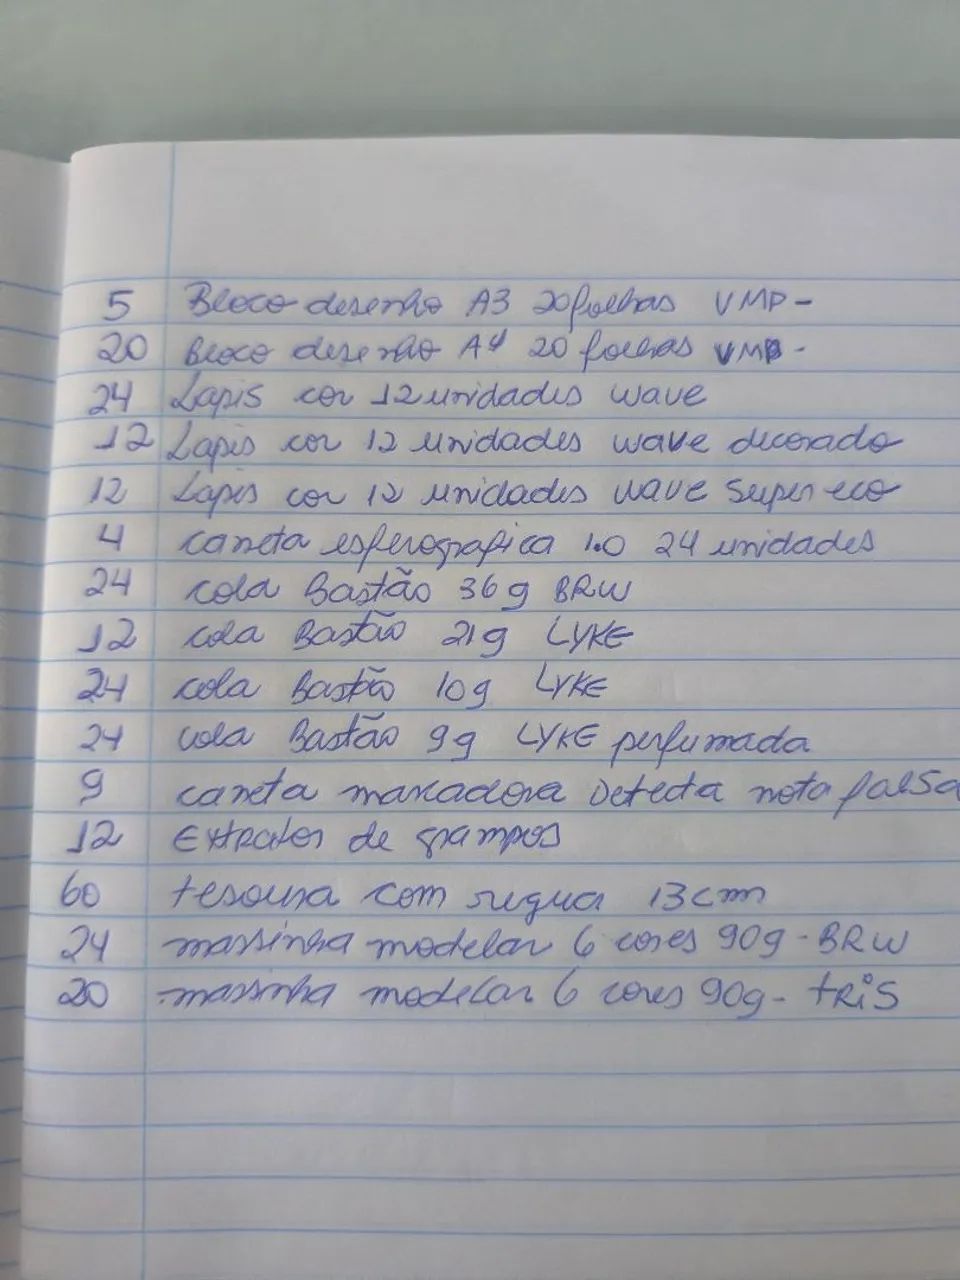 5 Bloco desenho A3 20 folhas VMP -
20 Bloco desenho A4 20 folhas VMP -
24 Lapis cor 12 unidades wave
12 Lapis cor 12 unidades wave decorado
12 Lapis cor 12 unidades wave super eco
4 caneta esferografica 1.0 24 unidades
24 cola Bastão 36g BRW
12 cola Bastão 21g LYKE
24 cola Bastão 10g LYKE
24 cola Bastão 9g LYKE perfumada
9 caneta marcadora Detecta nota falsa
12 Extrator de grampos
60 tesoura com regua 13cm
24 massinha modelar 6 cores 90g - BRW
20 massinha modelar 6 cores 90g - tRiS